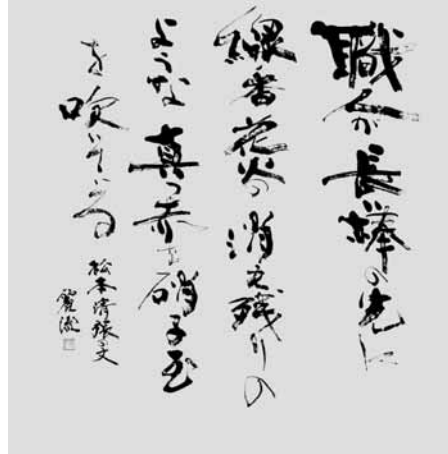 職人が長棒の先に
線香花火の消え残りの
ような真っ赤な硝子玉
を吹いている
松本清張文